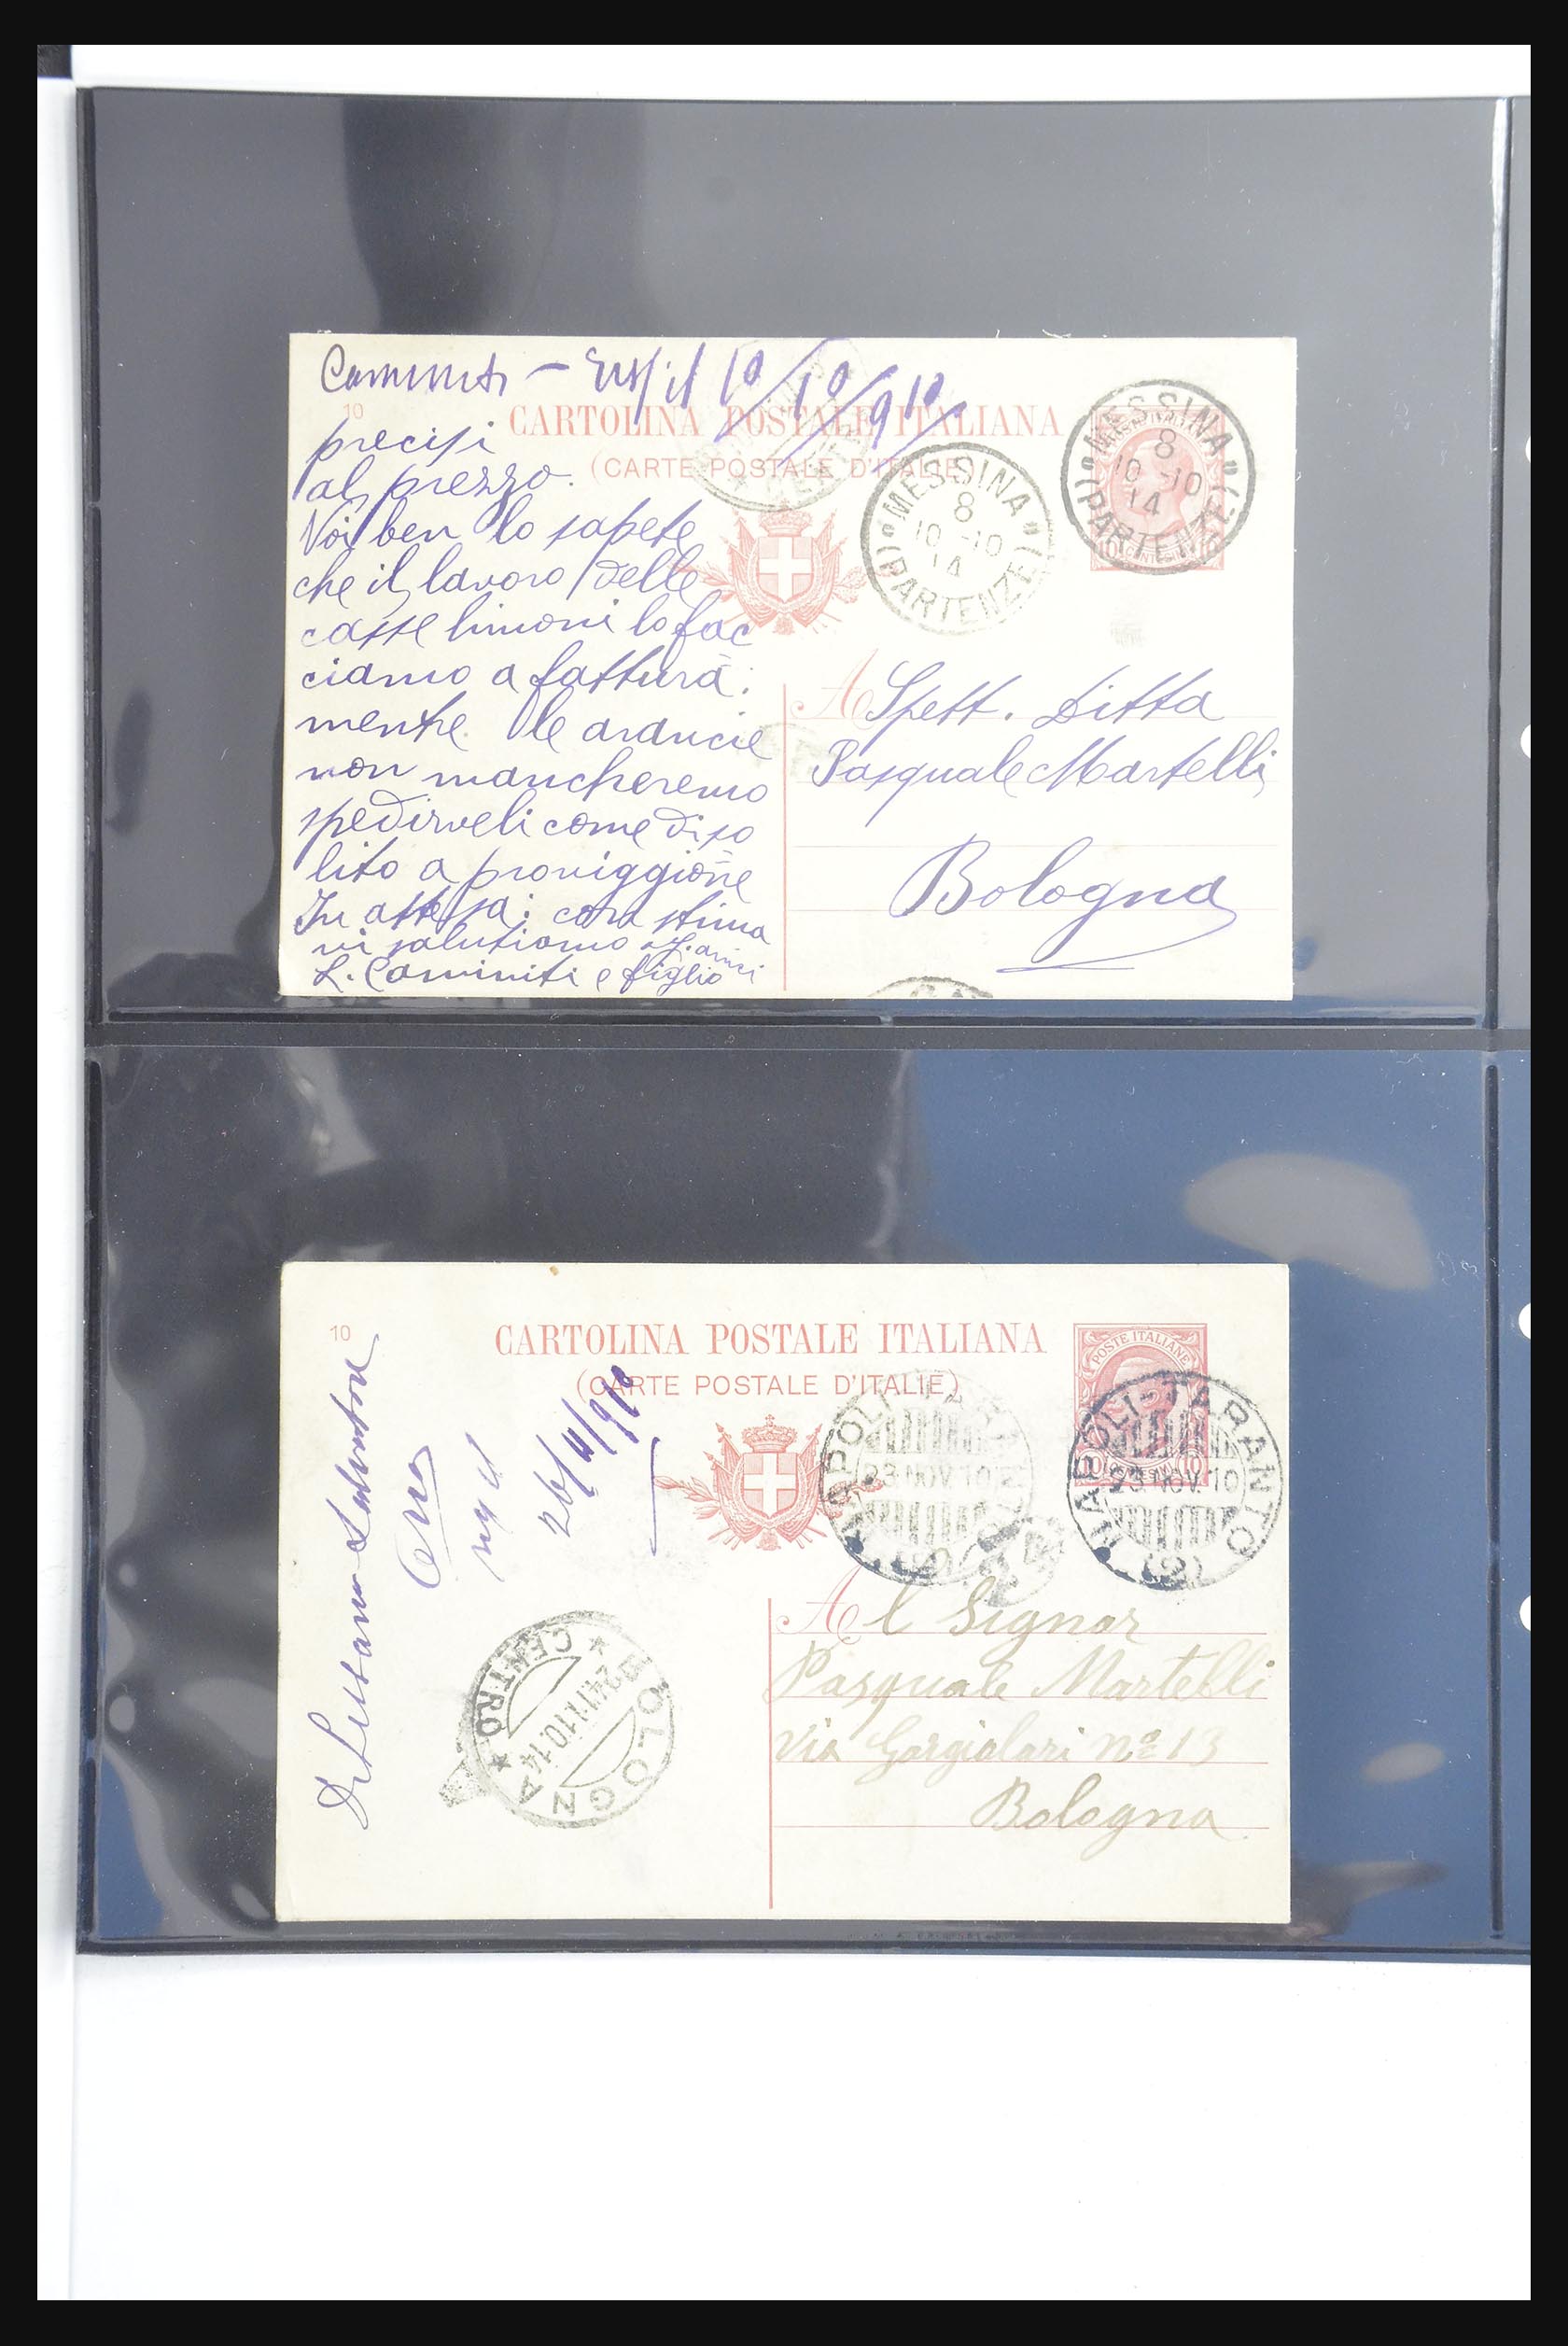 10/10/910
10
CARTOLINA POSTALE ITALIANA
(CARTE POSTALE D'ITALIE)
"MESSINA"
8
10-10
14
(PARTENZE)
"MESSINA"
8
10-10
14
(PARTENZE)
precisi
al prezzo.
Voi ben lo sapete
che il lavoro delle
casse limoni lo fac
ciamo a fattura:
mentre le arancie
non mancheremo
spedirveli come di so
lito a proviggione
In attesa: con stima
vi salutiamo
L. Caminiti e figlio
A Spett. Ditta
Pasquale Martelli
Bologna
10
CARTOLINA POSTALE ITALIANA
(CARTE POSTALE D'ITALIE)
POSTE ITALIANE
10 10
NAPOLI-TARANTO
23 NOV. 10
(2)
NAPOLI-TARANTO
23 NOV. 10
(2)
Salvatore
26/11/910
BOLOGNA
24.11.10.14
* CENTRO *
Al Signor
Pasquale Martelli
Via Gargiolari Nº 13
Bologna